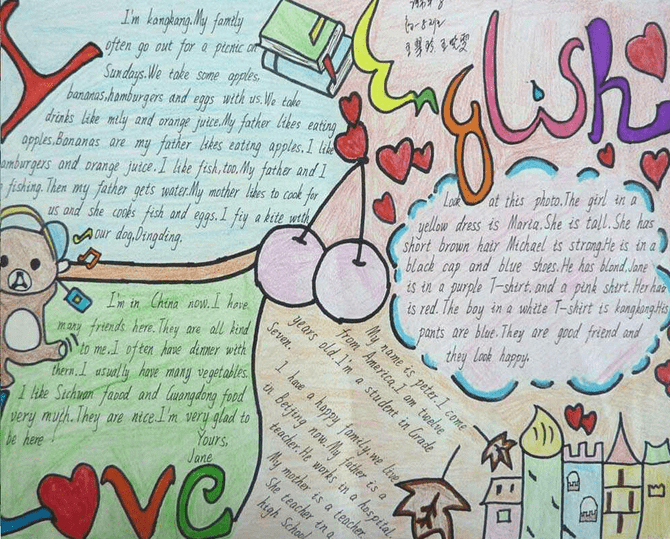 I'm kangkang.My family
often go out for a picnic on
Sundays.We take some apples,
bananas,hamburgers and eggs with us.We take
drinks like mily and orange juice.My father likes eating
apples.Bananas are my father likes eating apples.I like
amburgers and orange juice.I like fish,too.My father and I
fishing.Then my father gets water.My mother likes to cook for
us and she cooks fish and eggs.I fiy a kite with
our dog,Dingding.
English
Look at this photo.The girl in a
yellow dress is Maria.She is tall.She has
short brown hair Michael is strong.He is in a
black cap and blue shoes.He has blond.Jane
is in a purple T-shirt.and a pink shirt.Her hair
is red.The boy in a white T-shirt is kangkong.His
pants are blue.They are good friend and
they look happy.
I'm in China now.I have
many friends here.They are all kind
to me.I often have dinner with
them.I usually have many vegetables.
I like Sichuan faood and Guangdong food
very much.They are nice.I'm very glad to
be here
Yours,
Jane
My name is peter.I come
from America.I am twelve
years old.I'm a student in Grade
Seven.
I have a happy family.we live
in Beijing now.My father is a
teacher.He works in a hospital.
My mother is a teacher
She teacher in a
high School
Love